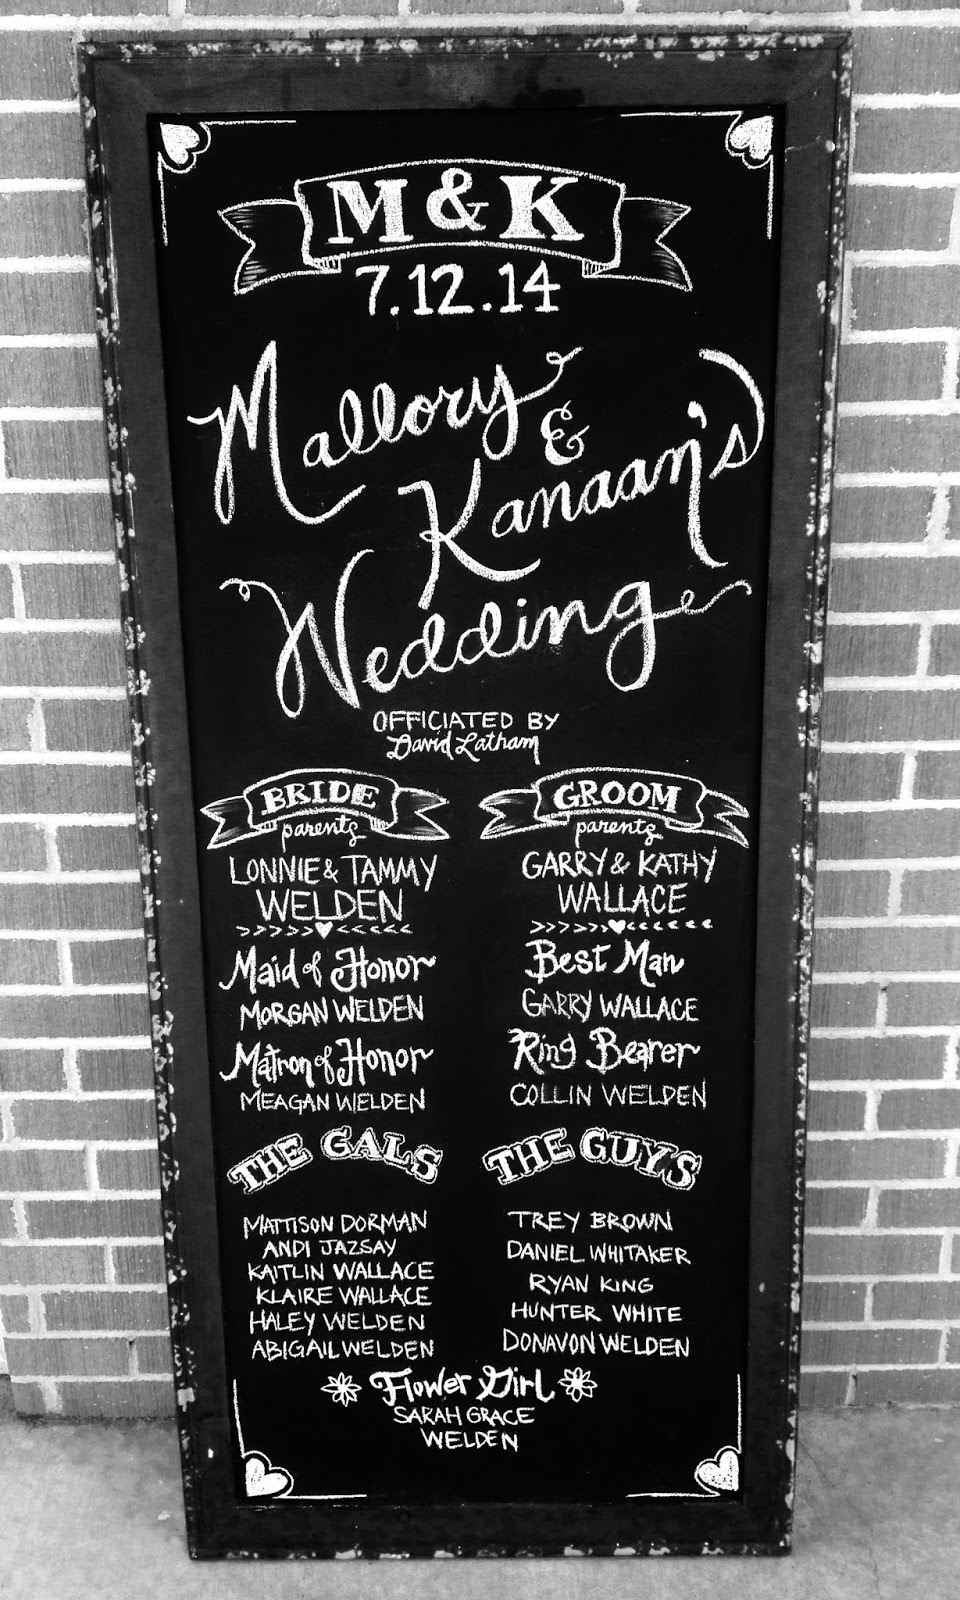 M & K
7.12.14
Mallory
&
Kanaan's
Wedding
OFFICIATED BY
David Latham
BRIDE
parents
LONNIE & TAMMY
WELDEN
Maid of Honor
MORGAN WELDEN
Matron of Honor
MEAGAN WELDEN
THE GALS
MATTISON DORMAN
ANDI JAZSAY
KAITLIN WALLACE
KLAIRE WALLACE
HALEY WELDEN
ABIGAIL WELDEN
GROOM
parents
GARRY & KATHY
WALLACE
Best Man
GARRY WALLACE
Ring Bearer
COLLIN WELDEN
THE GUYS
TREY BROWN
DANIEL WHITAKER
RYAN KING
HUNTER WHITE
DONAVON WELDEN
Flower Girl
SARAH GRACE
WELDEN